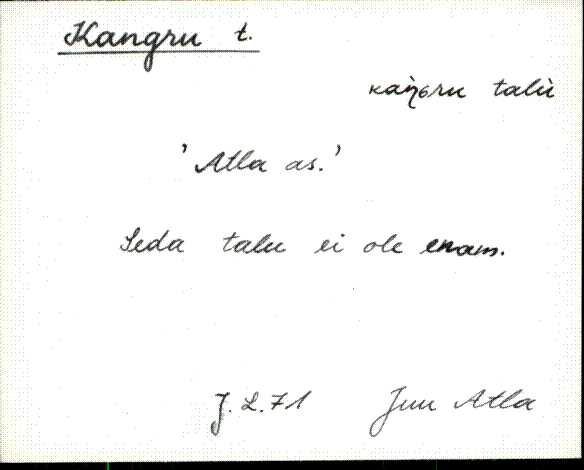 Kangru t.
kaŋ̀gru talù
'Atla as.'
Seda talu ei ole enam.
J. L. 71 Juu Atla